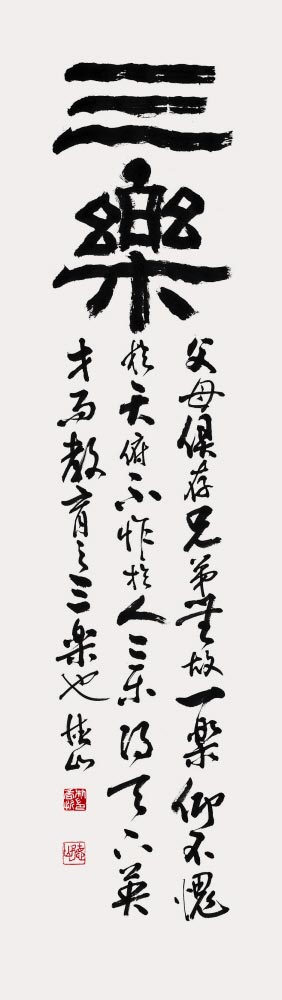 三樂
父母俱存兄弟無故一樂仰不愧
於天俯不怍於人二樂得天下英
才而教育之三樂也